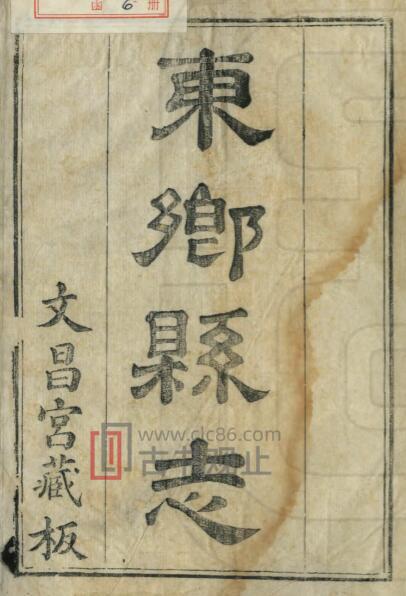 函 6 册
東鄉縣志
文昌宮藏板
www.clc86.com
古书观止